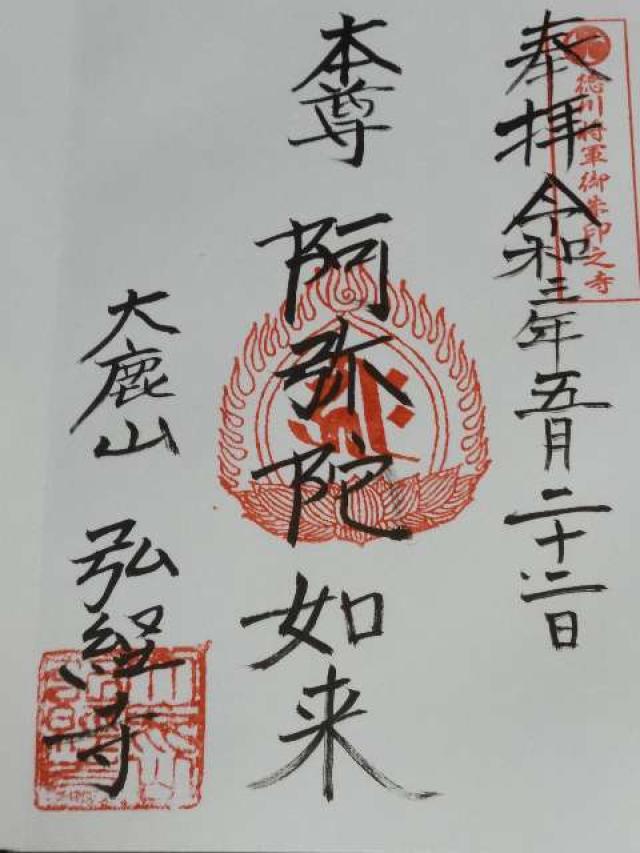 徳川将軍御朱印之寺
奉拝 令和三年五月二十二日
本尊 阿弥陀如来
大鹿山 弘経寺